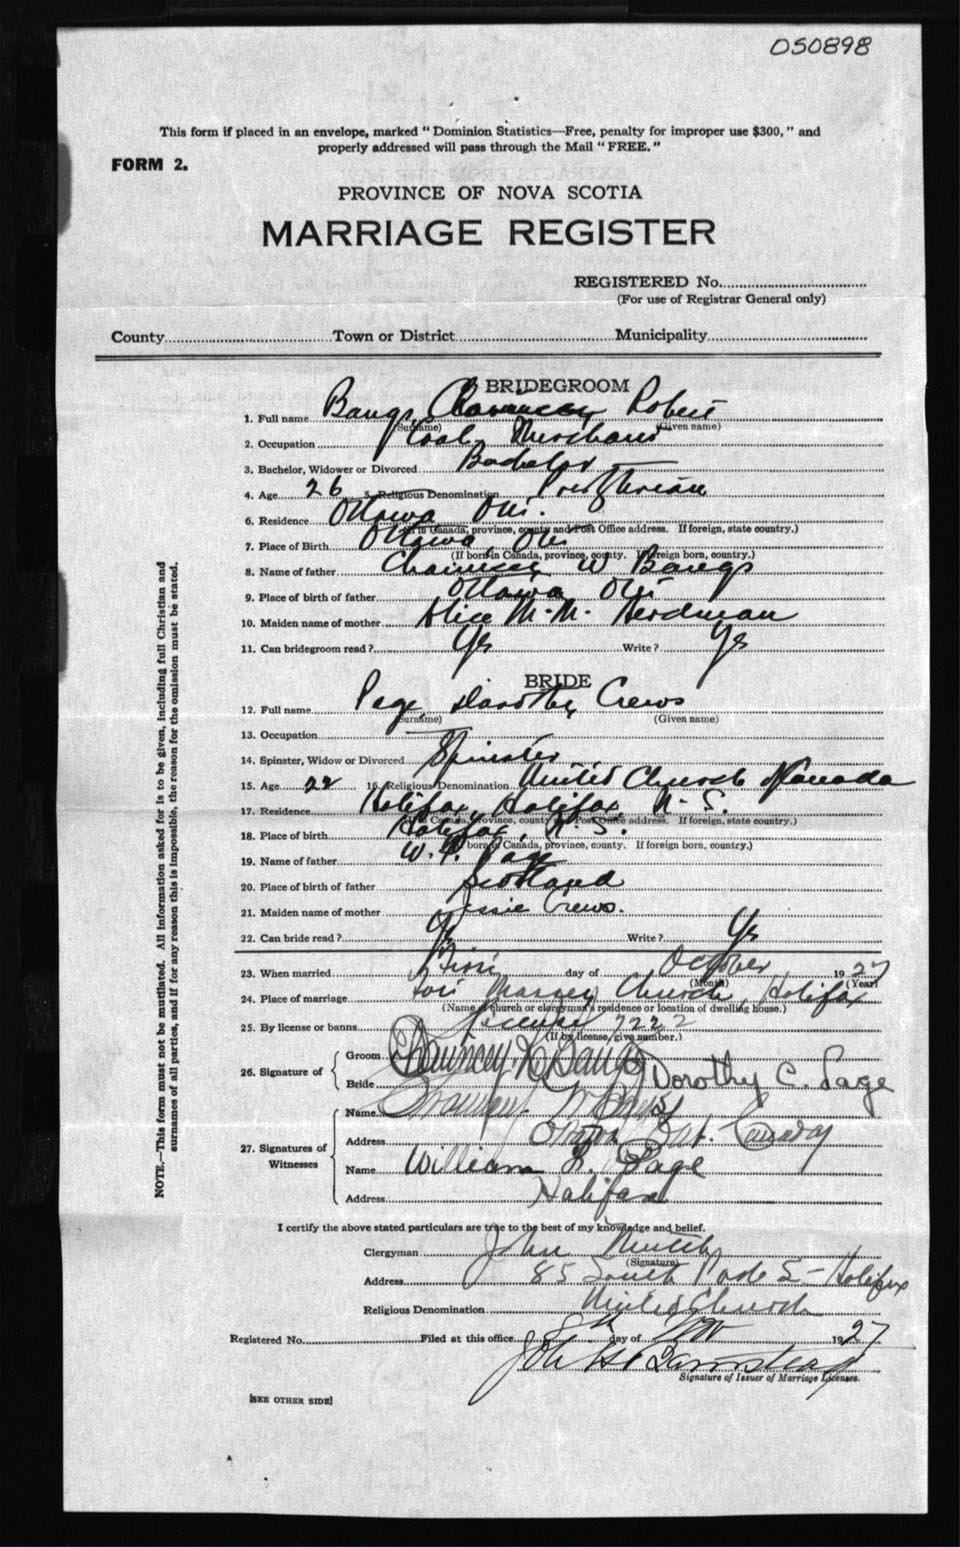 050898
This form if placed in an envelope, marked "Dominion Statistics—Free, penalty for improper use $300," and
properly addressed will pass through the Mail "FREE."
FORM 2.
PROVINCE OF NOVA SCOTIA
MARRIAGE REGISTER
REGISTERED No.
(For use of Registrar General only)
County Town or District Municipality
BRIDEGROOM
1. Full name Bangs Chauncey Robert
(Surname) (Given name)
2. Occupation Coal Merchant
3. Bachelor, Widower or Divorced Bachelor
4. Age 26 5. Religious Denomination Presbyterian
6. Residence Ottawa Ont.
(If in Canada, province, county and Post Office address. If foreign, state country.)
7. Place of Birth Ottawa Ont
(If born in Canada, province, county. If foreign born, country.)
8. Name of father Chauncey W Bangs
9. Place of birth of father Ottawa Ont
10. Maiden name of mother Alice M. M. Herdman
11. Can bridegroom read? Yes Write? Yes
BRIDE
12. Full name Page Dorothy Crews
(Surname) (Given name)
13. Occupation
14. Spinster, Widow or Divorced Spinster
15. Age 22 16. Religious Denomination United Church of Canada
17. Residence Halifax, Halifax, N. S.
(If in Canada, province, county and Post Office address. If foreign, state country.)
18. Place of birth Halifax, N. S.
(If born in Canada, province, county. If foreign born, country.)
19. Name of father W. Page
20. Place of birth of father Scotland
21. Maiden name of mother Jessie Crews.
22. Can bride read? Yes Write? Yes
23. When married First day of October 1927
(Month) (Year)
24. Place of marriage Fort Massey Church, Halifax
(Name of church or clergyman's residence or location of dwelling house.)
25. By license or banns License 7222
(If by license, give number.)
26. Signature of Groom Chauncey R Bangs
Bride Dorothy C. Page
27. Signatures of Witnesses Name Chauncey W Bangs
Address Ont. Canada
Name William Page
Address Halifax
I certify the above stated particulars are true to the best of my knowledge and belief.
Clergyman John Mutch
(Signature)
Address 85 South Park St Halifax
Religious Denomination United Church
Registered No. Filed at this office 8th day of Nov 1927
John H Barnstead
Signature of Issuer of Marriage Licenses.
[SEE OTHER SIDE]
NOTE.—This form must not be mutilated. All information asked for is to be given, including full Christian and
surnames of all parties, and if for any reason this is impossible, the reason for the omission must be stated.